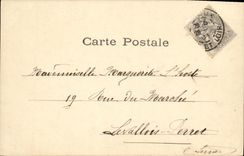 Carte Postale
Mademoiselle Marguerite L'hoste
19 Rue du Marché
Levallois-Perret
Seine